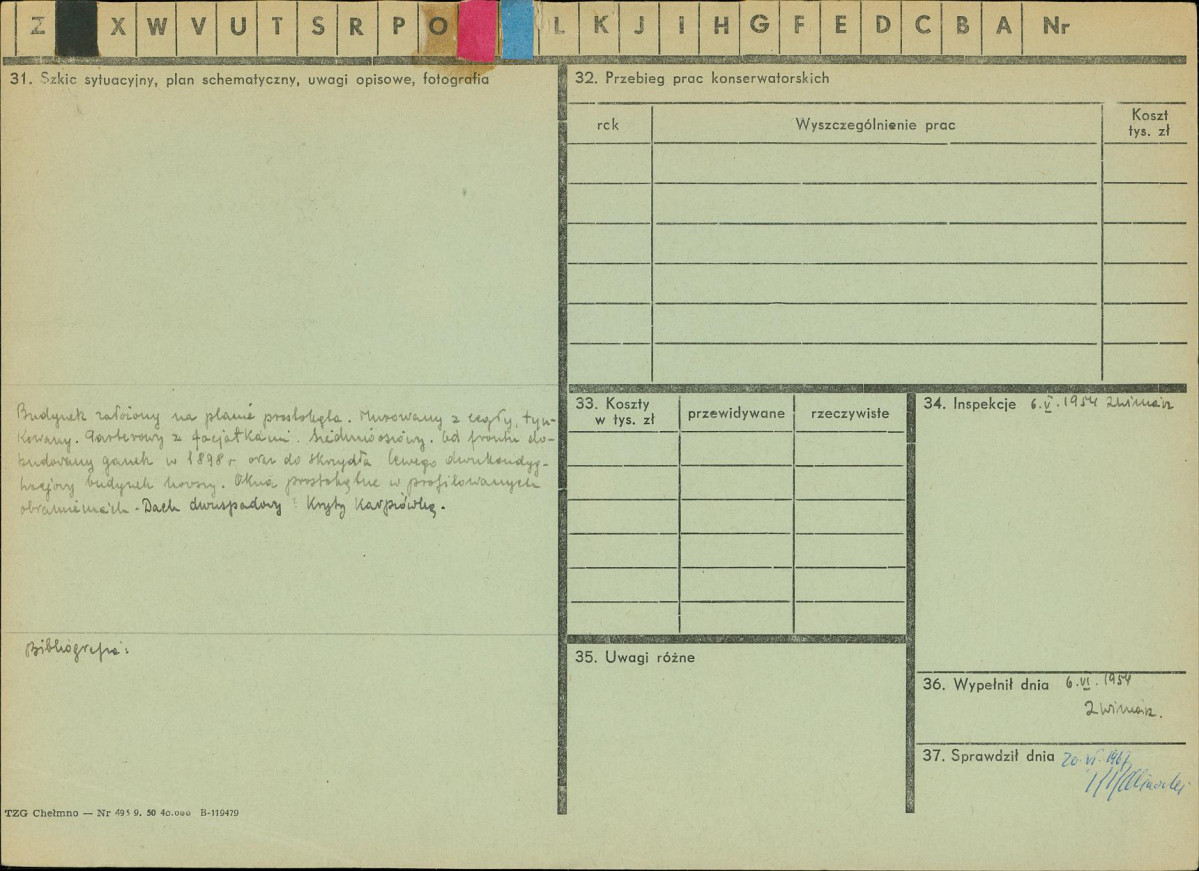 Z X W V U T S R P O L K J I H G F E D C B A Nr
31. Szkic sytuacyjny, plan schematyczny, uwagi opisowe, fotografia
Budynek założony na planie prostokąta. Murowany z cegły, tyn-
kowany. Parterowy z facjatkami. Siedmioosiowy. Od frontu do-
budowany ganek w 1898 r oraz do skrzydła lewego dwukondyg-
nacjowy budynek nowszy. Okna prostokątne w profilowanych
obramieniach. Dach dwuspadowy kryty karpiówką.
Bibliografia:
TZG Chełmno — Nr 495 9. 50 40.000 B-119479
32. Przebieg prac konserwatorskich
rck Wyszczególnienie prac Koszt
tys. zł
33. Koszty
w tys. zł przewidywane rzeczywiste
35. Uwagi różne
34. Inspekcje 6.V.1954
36. Wypełnił dnia 6.VI.1954
37. Sprawdził dnia 20.VI.1967